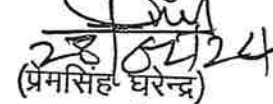 28/02/24
(प्रेमसिंह घरेन्द्र)